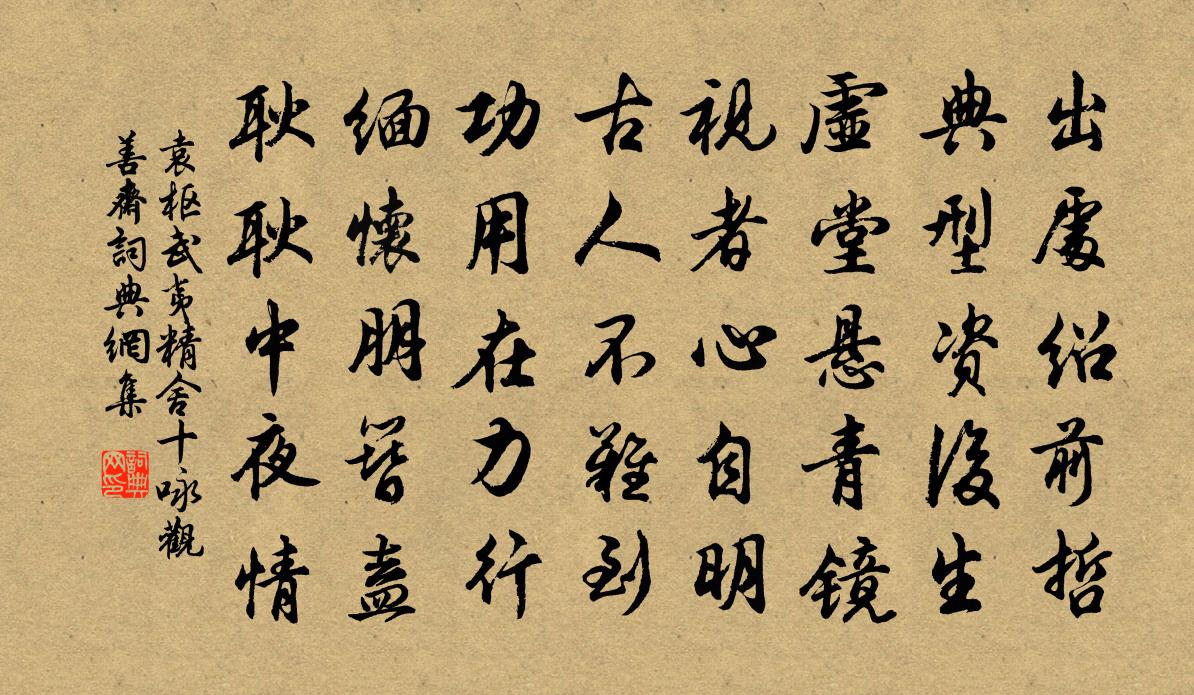 出處紹前哲
典型資後生
虛堂懸青鏡
視者心自明
古人不難到
功用在力行
緬懷朋簪盍
耿耿中夜情
袁枢武夷精舍十咏觀
善齋詞典網集
詞典
网印